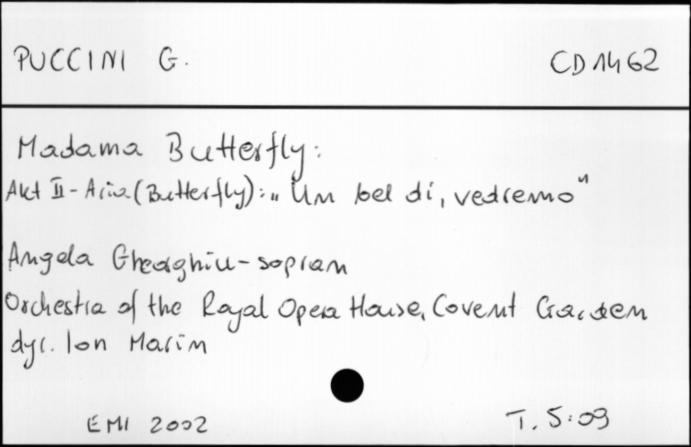 PUCCINI G. CD 1462
Madama Butterfly:
Akt II - Aria (Butterfly): „Un bel di, vedremo"
Angela Gheorghiu - sopran
Orchestra of the Royal Opera House, Covent Garden
dyr. Ion Marin
EMI 2002 T. 5:09